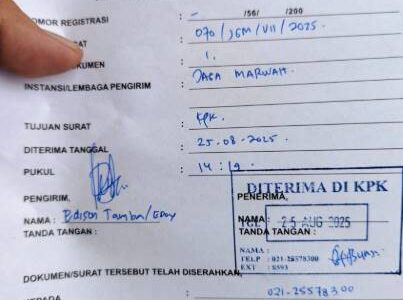 /56/ /200
NOMOR REGISTRASI : -
AT : 070/JGM/VII/2025.
KUMEN : 1.
INSTANSI/LEMBAGA PENGIRIM : JAGA MARWAH.
TUJUAN SURAT : KPK.
DITERIMA TANGGAL : 25-08-2025.
PUKUL : 14:12.
PENGIRIM, PENERIMA,
DITERIMA DI KPK
NAMA : Edison Tamba/Edoy
TANDA TANGAN :
NAMA
TGL 25 AUG 2025
TANDA TANGAN :
NAMA :
TELP : 021-25578300
EXT : 8591
DOKUMEN/SURAT TERSEBUT TELAH DISERAHKAN
KEPADA : 021-25578300